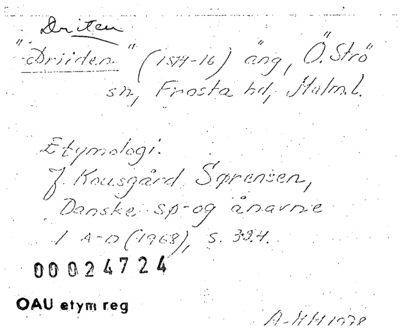 Driten
"Driiden" (1514-16) äng, Ö. Strö
sn, Frosta hd, Malm.l.
Etymologi.
J. Kousgård Sørensen,
Danske sø- og ånavne
1 A-D (1968), s. 334.
00024724
OAU etym reg
A-HH 1978